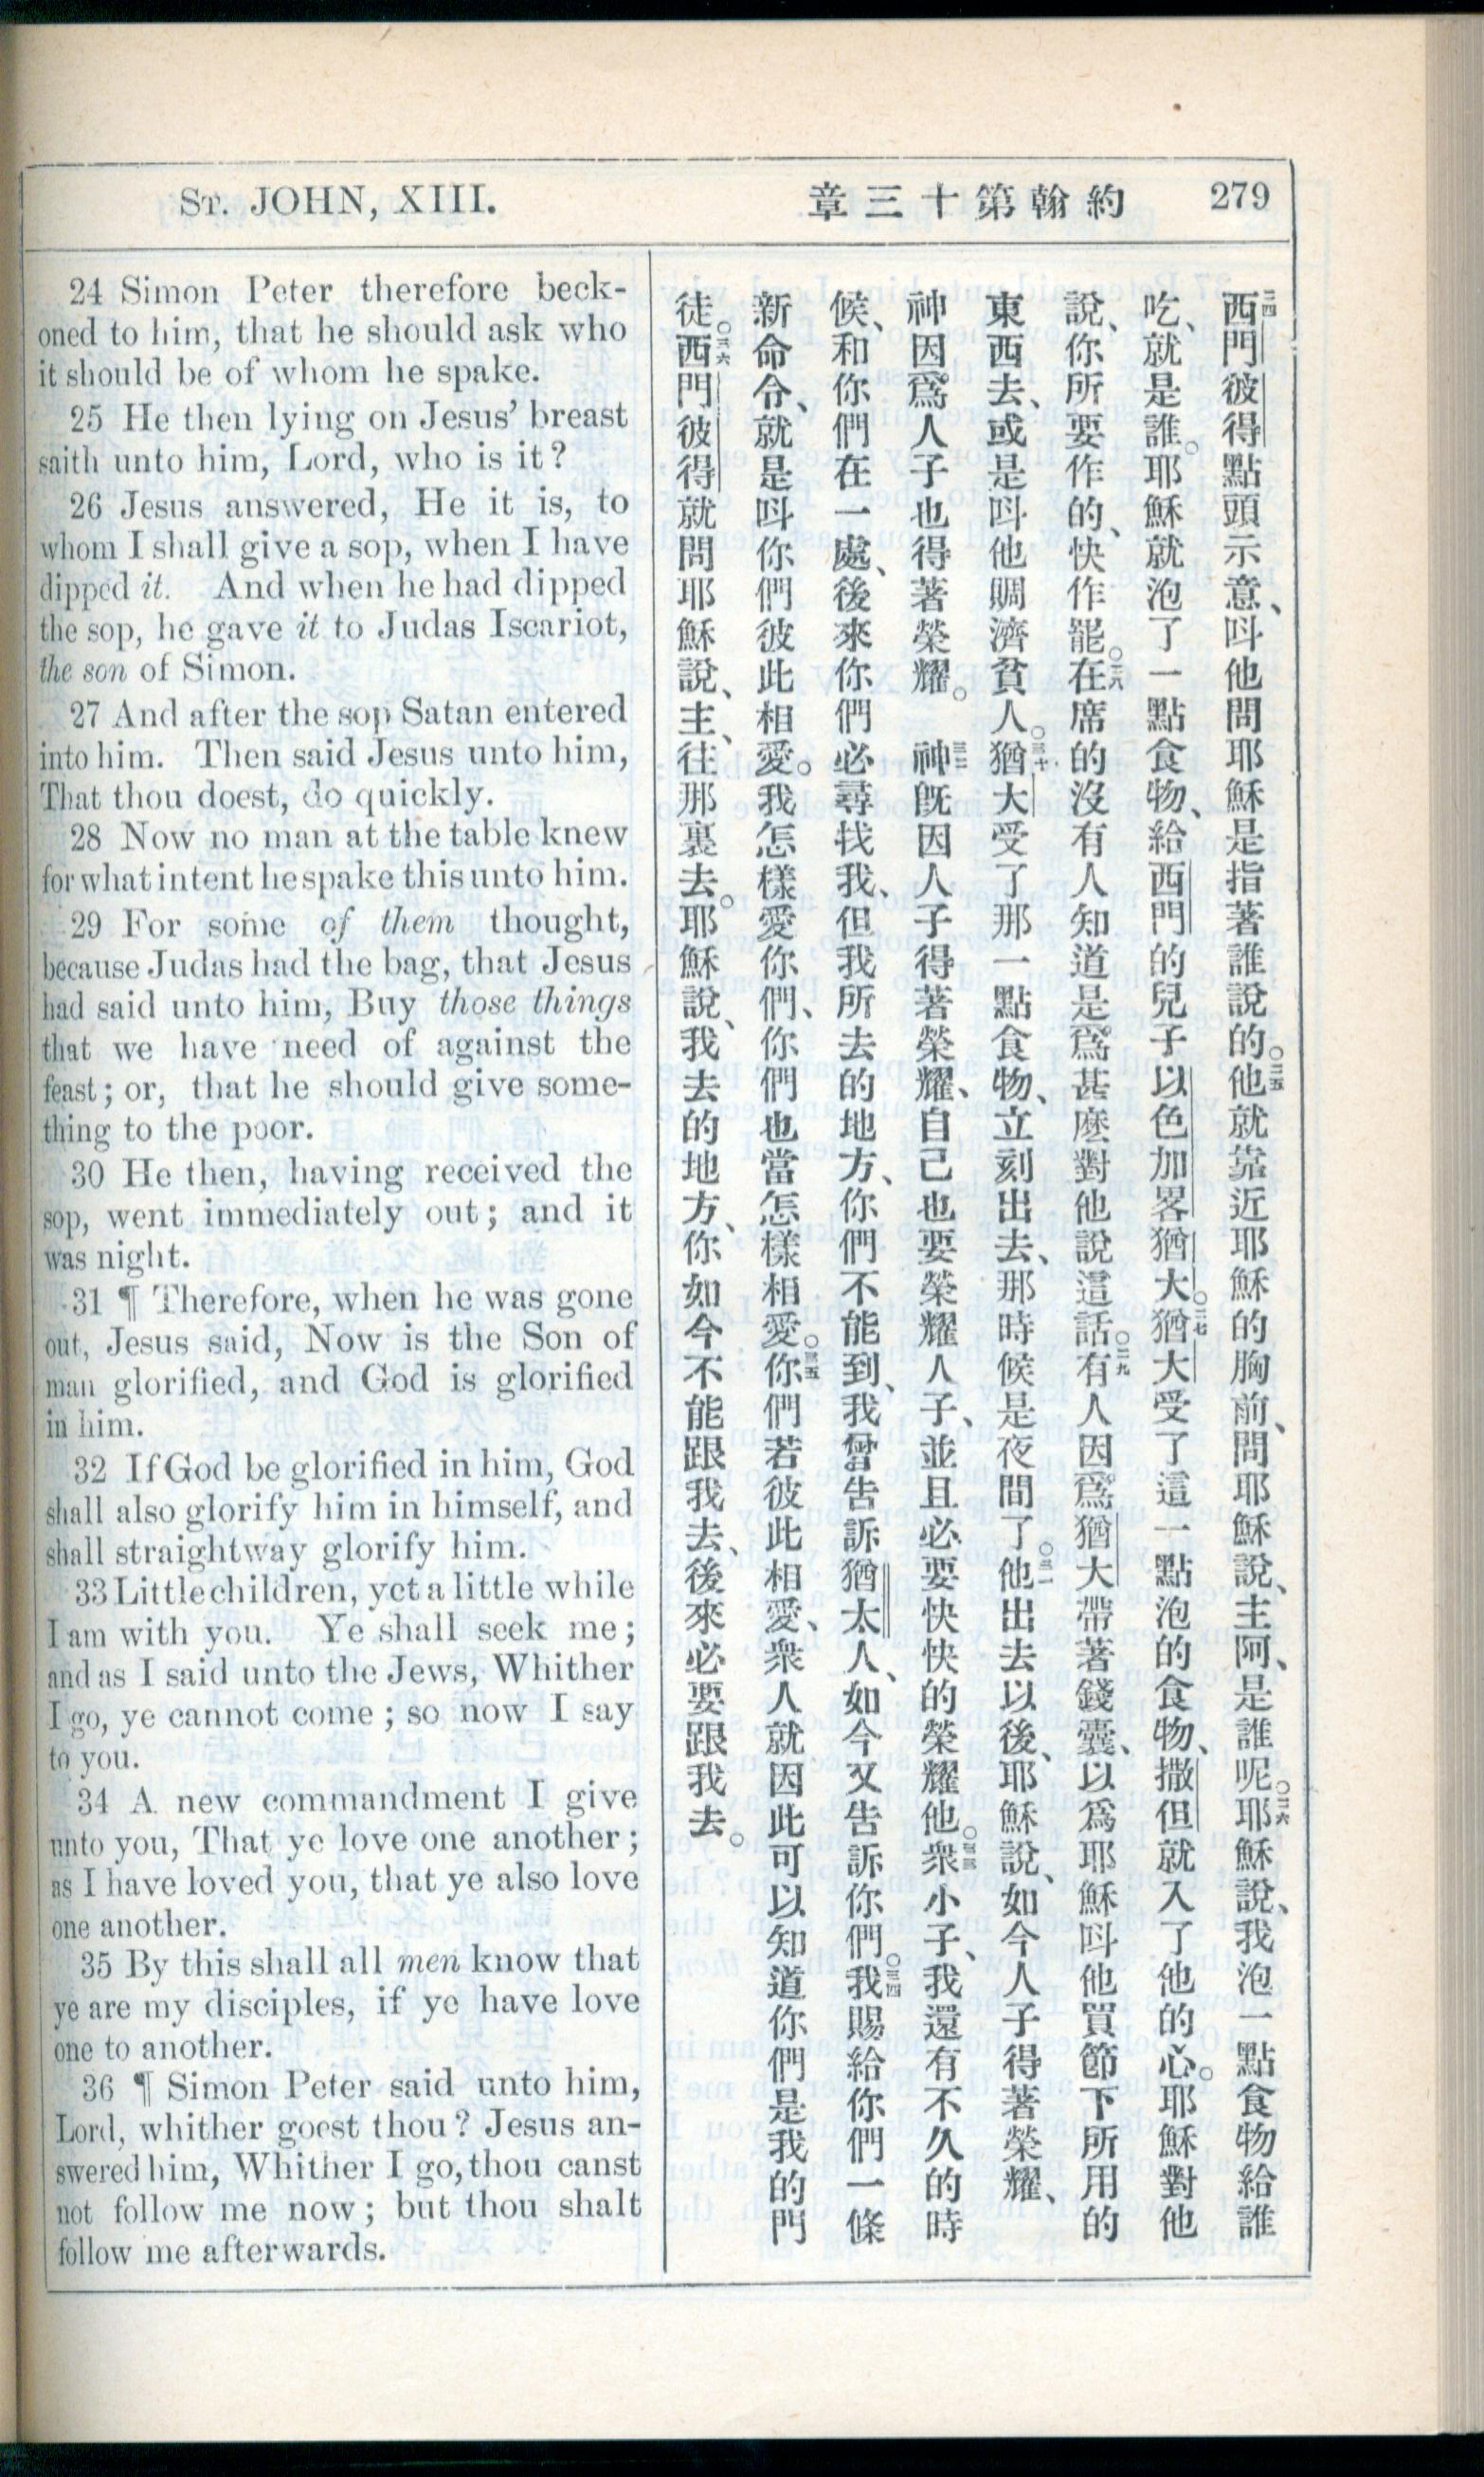 St. JOHN, XIII.
約翰第十三章
279
24 Simon Peter therefore beck-
oned to him, that he should ask who
it should be of whom he spake.
25 He then lying on Jesus' breast
saith unto him, Lord, who is it?
26 Jesus answered, He it is, to
whom I shall give a sop, when I have
dipped it. And when he had dipped
the sop, he gave it to Judas Iscariot,
the son of Simon.
27 And after the sop Satan entered
into him. Then said Jesus unto him,
That thou doest, do quickly.
28 Now no man at the table knew
for what intent he spake this unto him.
29 For some of them thought,
because Judas had the bag, that Jesus
had said unto him, Buy those things
that we have need of against the
feast; or, that he should give some-
thing to the poor.
30 He then, having received the
sop, went immediately out; and it
was night.
31 ¶ Therefore, when he was gone
out, Jesus said, Now is the Son of
man glorified, and God is glorified
in him.
32 If God be glorified in him, God
shall also glorify him in himself, and
shall straightway glorify him.
33 Little children, yet a little while
I am with you. Ye shall seek me;
and as I said unto the Jews, Whither
I go, ye cannot come; so now I say
to you.
34 A new commandment I give
unto you, That ye love one another;
as I have loved you, that ye also love
one another.
35 By this shall all men know that
ye are my disciples, if ye have love
one to another.
36 ¶ Simon Peter said unto him,
Lord, whither goest thou? Jesus an-
swered him, Whither I go, thou canst
not follow me now; but thou shalt
follow me afterwards.
二四西門彼得點頭示意、叫他問耶穌是指著誰說的。二五他就靠近耶穌的胸前、問耶穌說、主阿、是誰呢。二六耶穌說、我泡一點食物給誰
吃、就是誰。耶穌就泡了一點食物、給西門的兒子以色加畧猶大。二七猶大受了這一點泡的食物、撒但就入了他的心。耶穌對他
說、你所要作的、快作罷。二八在席的沒有人知道是爲甚麽對他說這話。二九有人因爲猶大帶著錢囊、以爲耶穌叫他買節下所用的
東西去、或是叫他賙濟貧人。三十猶大受了那一點食物、立刻出去、那時候是夜間了。三一他出去以後、耶穌說、如今人子得著榮耀、
神因爲人子也得著榮耀。三二神旣因人子得著榮耀、自己也要榮耀人子、並且必要快快的榮耀他。三三衆小子、我還有不久的時
候、和你們在一處、後來你們必尋找我、但我所去的地方、你們不能到、我曾吿訴猶太人、如今又吿訴你們。三四我賜給你們一條
新命令、就是叫你們彼此相愛。我怎樣愛你們、你們也當怎樣相愛。三五你們若彼此相愛、衆人就因此可以知道你們是我的門
徒。三六西門彼得就問耶穌說、主、往那裏去。耶穌說、我去的地方、你如今不能跟我去、後來必要跟我去。